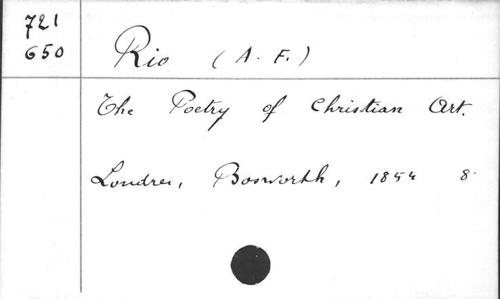 721
650
Rio (A. F.)
The Poetry of Christian Art.
Londres, Bosworth, 1854 8.